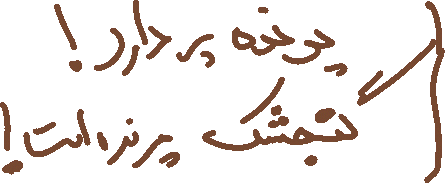 پرنده پر دارد!
گنجشک پرنده است!